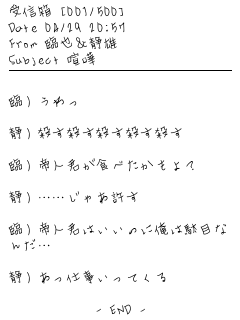 受信箱 [001/500]
Date 04/29 20:57
From 臨也&静雄
Subject 喧嘩
臨）うわっ
静）殺す殺す殺す殺す殺す
臨）帝人君が食べたかもよ？
静）……じゃあ許す
臨）帝人君はいいのに俺は駄目な
んだ…
静）あっ仕事いってくる
- END -